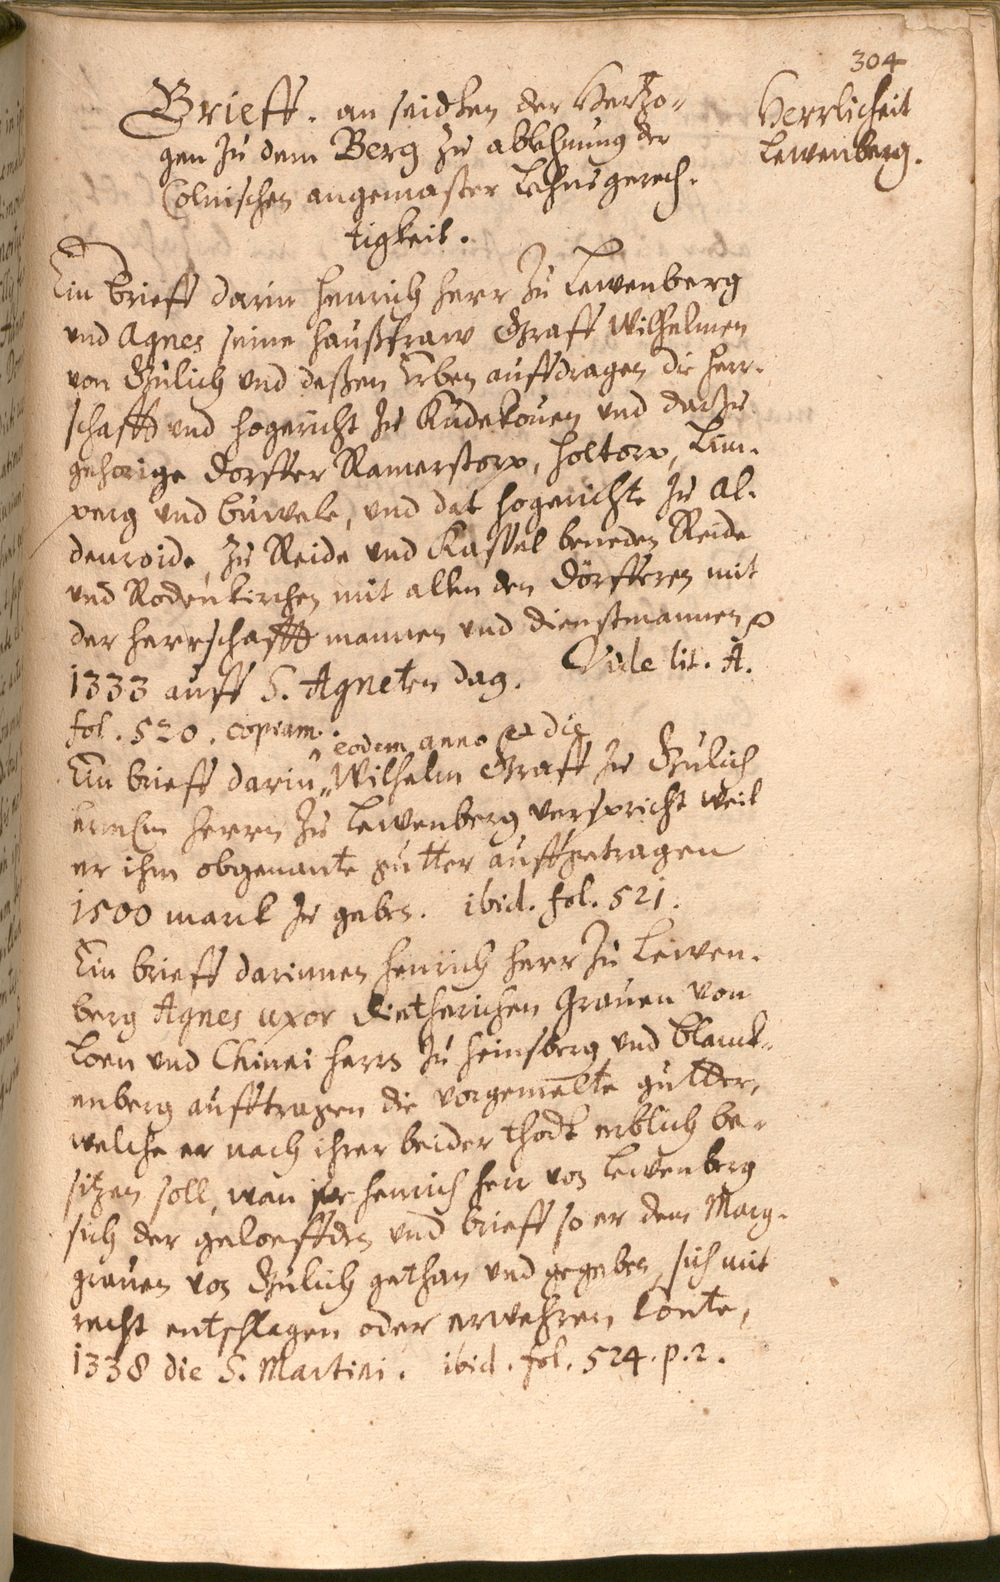 304
Herrlicheit
Lewenberg.
Brieff. an seidten der Hertzo-
gen zu dem Berg zu ablehnung der
Colnischen angemaster Lehnsgerech-
tigkeit.
Ein brieff darin Henrich Herr zu Lewenberg
und Agnes seine haußfraw Graff Wilhelmen
von Gulich und deßen Erben aufftragen die Herr-
schafft und hogericht zu Kudekouen und darzu
gehorige dorffer Ramerstorp, Holtorp, Lim-
perg und buwele, und dat hogerichte zu Al-
denroide, zu Reide und Kassel beneden Reide
und Rodenkirchen mit allen den Dörfferen mit
der herrschafft mannen und dienstmannen
1333 auff S. Agneten dag. Vide lit. A.
fol. 520. copiam.
eodem anno et die
Ein brieff darin Wilhelm Graff zu Gulich
Herren zu Lewenberg verspricht weil
er ihm obgenante gutter auffgetragen
1500 marck zu geben. ibid. fol. 521.
Ein brieff darinnen Henrich Herr zu Lewen-
berg Agnes uxor Dietherichen Grauen von
Loen und Chinei Herrn zu Heinsberg und blanck-
enberg aufftragen die vorgemelte gutter,
welche er nach ihrer beider thodt erblich be-
sitzen soll, wan Henrich Herr von Lewenberg
sich der geloefften und brieff so er dem Marg-
grauen von Gulich gethan und gegeben, sich mit
recht entschlagen oder erwehren konte,
1338 die S. Martini. ibid. fol. 524. p. 2.